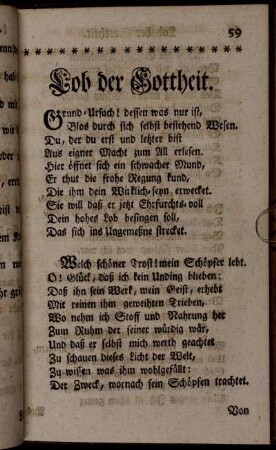 59
Lob der Gottheit.
Grund-Ursach! dessen was nur ist,
Blos durch sich selbst bestehend Wesen.
Du, der du erst und letzter bist
Aus eigner Macht zum All erlesen.
Hier öffnet sich ein schwacher Mund,
Er thut die frohe Regung kund,
Die ihm dein Würklich-seyn erwecket.
Sie will daß er jetzt Ehrfurchts-voll
Dein hohes Lob besingen soll,
Das sich ins Ungemeßne strecket.
Welch schöner Trost! mein Schöpfer lebt.
O! Glück, daß ich kein Unding blieben:
Daß ihn sein Werk, mein Geist, erhebt
Mit reinen ihm geweihten Trieben,
Wo nehm ich Stoff und Nahrung her
Zum Ruhm der seiner würdig wär,
Und daß er selbst mich werth geachtet
Zu schauen dieses Licht der Welt,
Zu wissen was ihm wohlgefällt:
Der Zweck, wornach sein Schöpfen trachtet.
Von